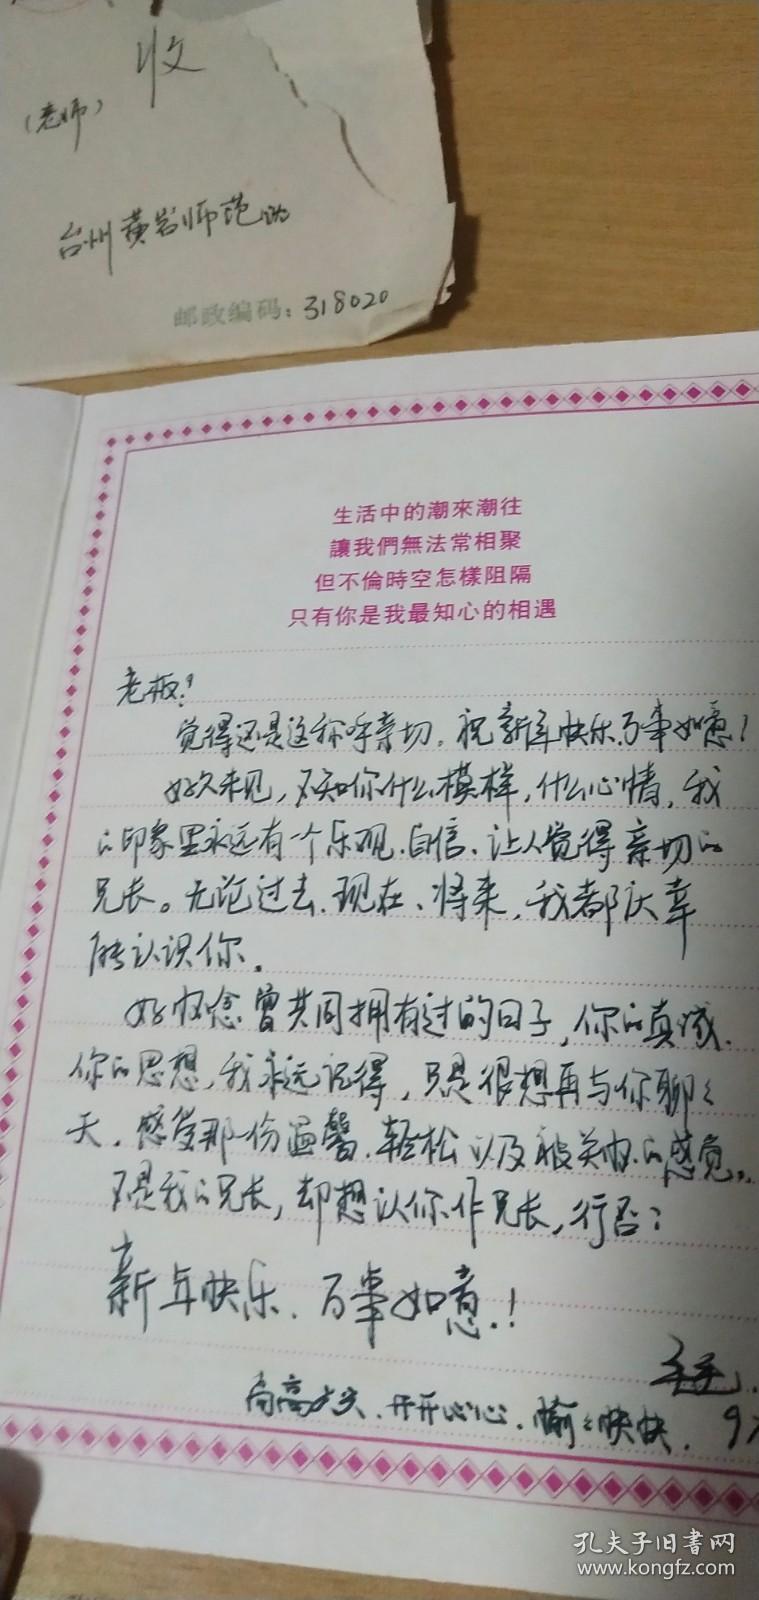 收
（老师）
台州黄岩师范
邮政编码：318020
生活中的潮來潮往
讓我們無法常相聚
但不倫時空怎樣阻隔
只有你是我最知心的相遇
老板！
觉得还是这称呼亲切。祝新年快乐、万事如意！
好久未见，不知你什么模样，什么心情，我
的印象里永远有一个乐观、自信、让人觉得亲切的
兄长。无论过去、现在、将来，我都庆幸
能认识你。
好怀念曾共同拥有过的日子，你的真诚、
你的思想，我永远记得，只是很想再与你聊々
天，感受那一份温馨、轻松以及被关怀的感觉。
不是我的兄长，却想认你作兄长，行否？
新年快乐、万事如意！
高高兴兴、开开心心、愉々快快.
孔夫子旧书网
www.kongfz.com